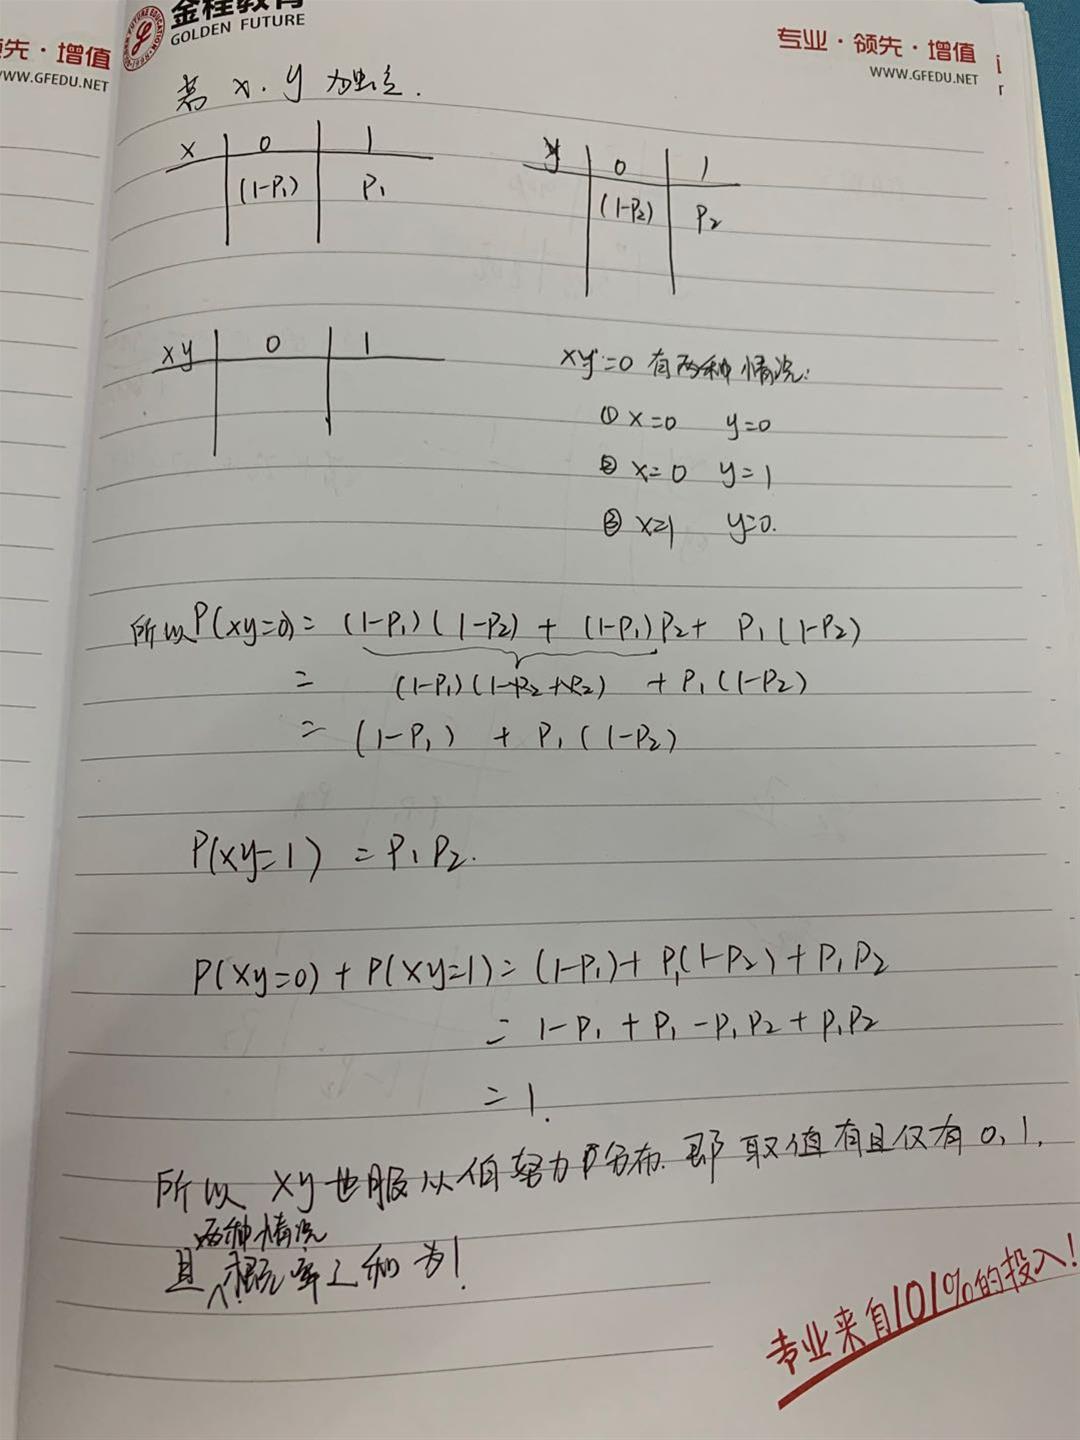 先·增值
WWW.GFEDU.NET
金程教育
GOLDEN FUTURE
专业·领先·增值
WWW.GFEDU.NET
若 x. y 为独立.
x 0 1
(1-P₁) P₁
y 0 1
(1-P₂) P₂
xy 0 1
xy=0 有两种情况:
① x=0 y=0
② x=0 y=1
③ x=1 y=0.
所以P(xy=0)= (1-P₁)(1-P₂) + (1-P₁)P₂+ P₁(1-P₂)
= (1-P₁)(1-P₂+P₂) + P₁(1-P₂)
= (1-P₁) + P₁(1-P₂)
P(xy=1) = P₁P₂.
P(xy=0)+P(xy=1)= (1-P₁)+P₁(1-P₂)+P₁P₂
= 1-P₁+P₁-P₁P₂+P₁P₂
= 1.
所以 xy也服从伯努力分布. 即 取值有且仅有 0, 1,
两种情况
且概率之和为1
专业来自101%的投入!